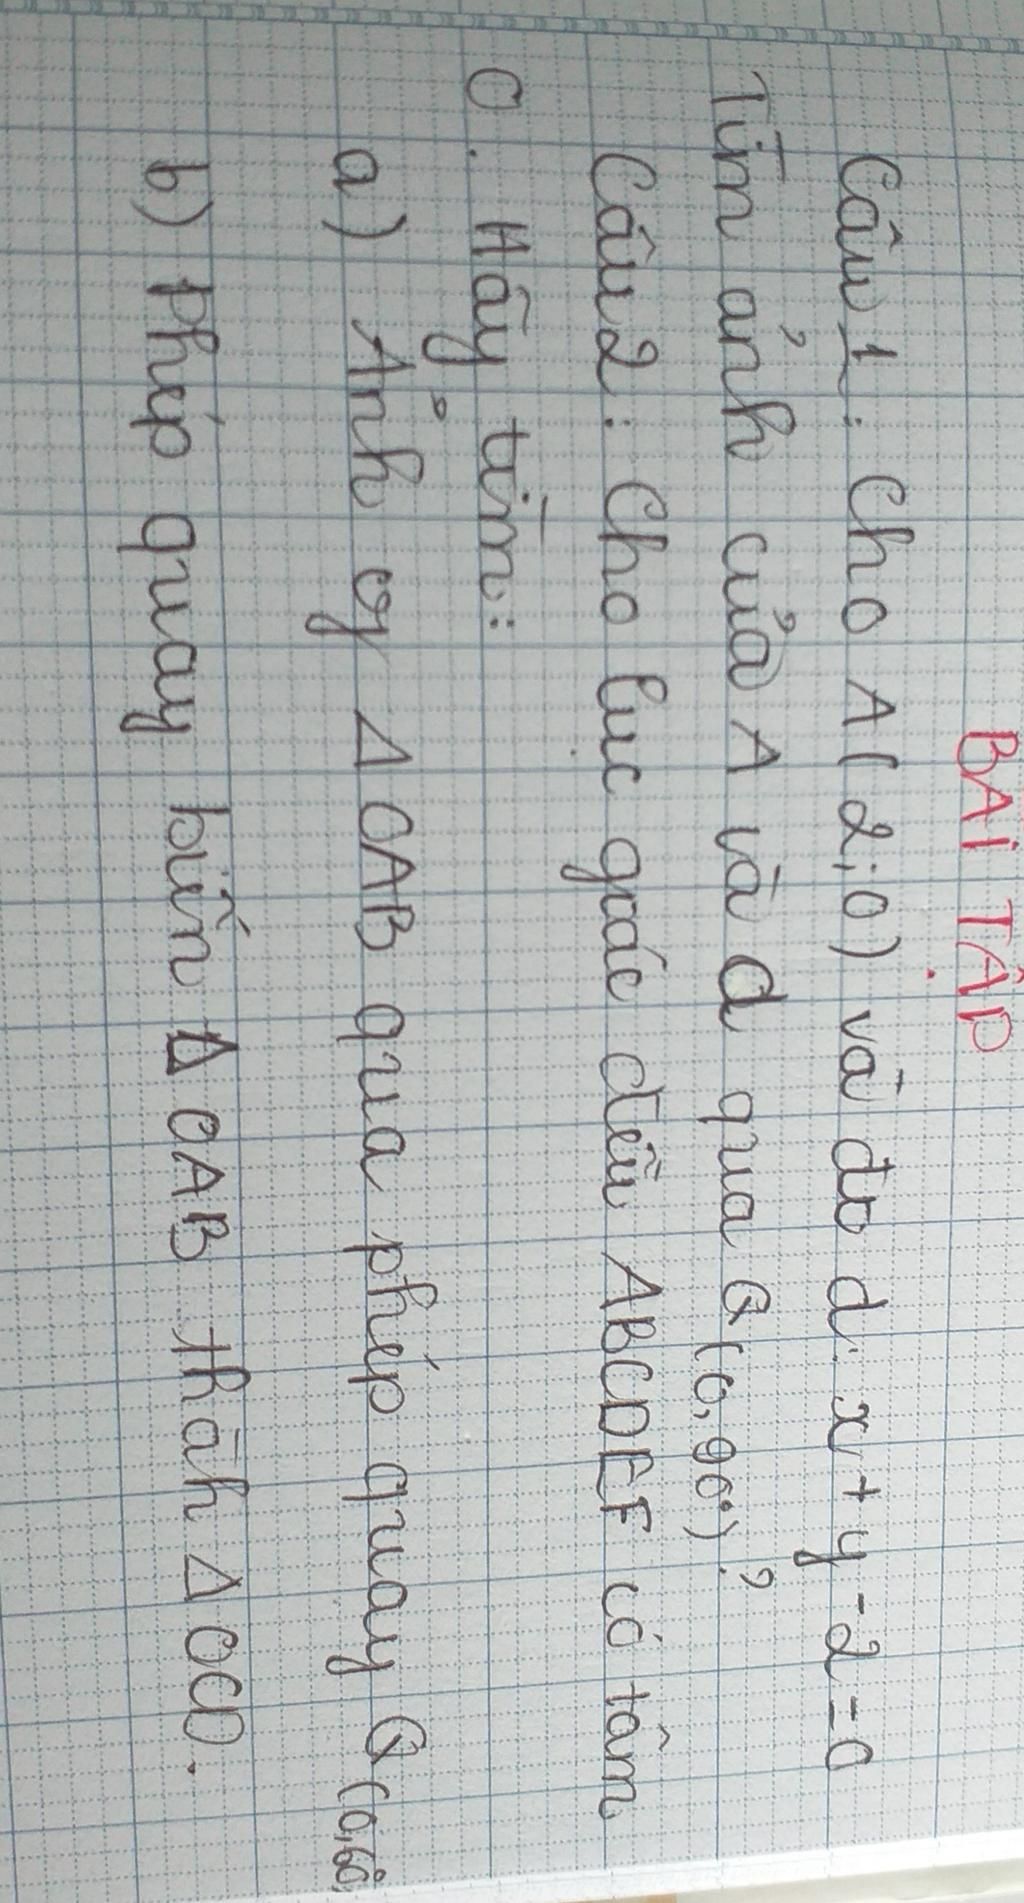 BÀI TẬP
Câu 1: Cho A(2;0) và đt d: x+y-2=0
Tìm ảnh của A và d qua Q(0,90°)?
Câu 2: Cho lục giác đều ABCDEF có tâm
O. Hãy tìm:
a) Ảnh of Δ OAB qua phép quay Q(0,60°
b) Phép quay biến Δ OAB thành Δ OCD.